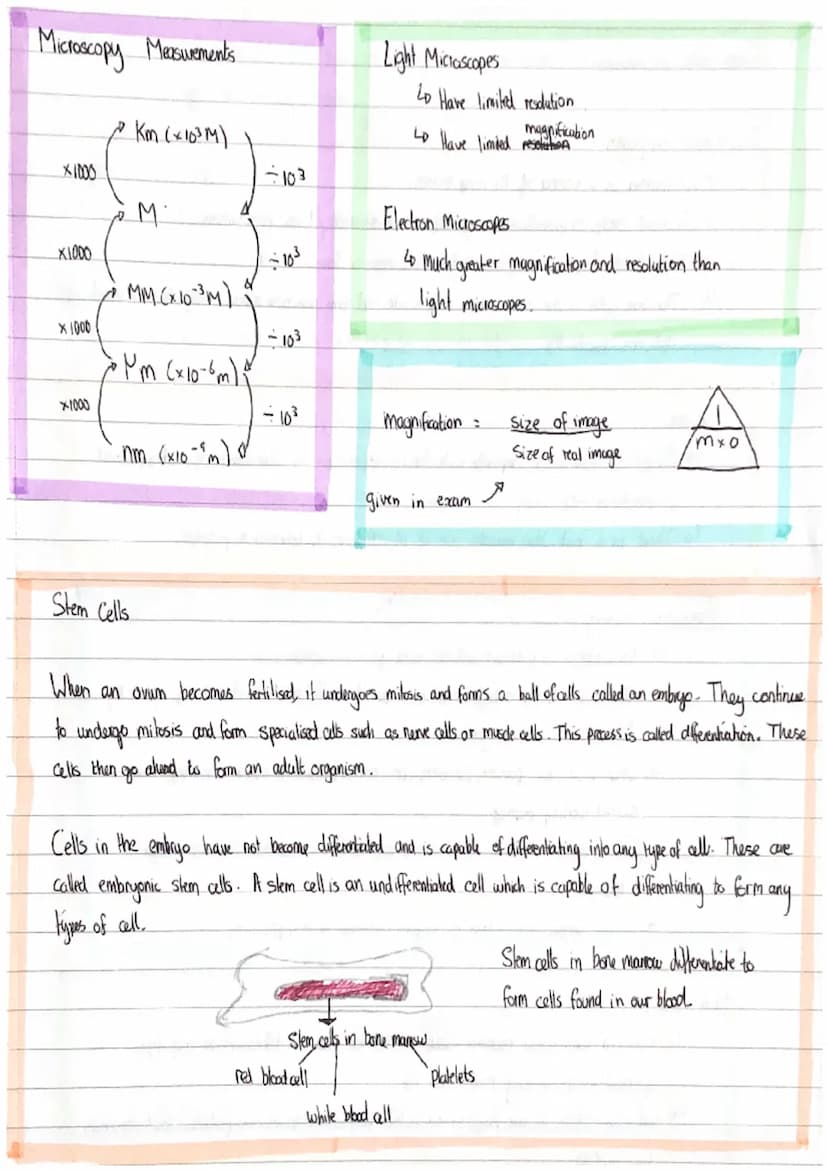 Microscopy Measurements
Km (×10³M)
×1000
÷10³
M
×1000
÷10³
MM (×10⁻³M)
×1000
÷10³
μm (×10⁻⁶m)
×1000
÷10³
nm (×10⁻⁹m)
Light Microscopes
↳ Have limited resolution
↳ Have limited magnification
Electron Microscopes
↳ Much greater magnification and resolution than
light microscopes.
magnification = size of image
Size of real image
given in exam
I
m × o
Stem Cells
When an ovum becomes fertilised, it undergoes mitosis and forms a ball of cells called an embryo. They continue
to undergo mitosis and form specialised cells such as nerve cells or muscle cells. This process is called differentiation. These
cells then go ahead to form an adult organism.
Cells in the embryo have not become differentiated and is capable of differentiating into any type of cell. These are
called embryonic stem cells. A stem cell is an undifferentiated cell which is capable of differentiating to form any
types of cell.
Stem cells in bone marrow differentiate to
form cells found in our blood
Stem cells in bone marrow
red blood cell
platelets
white blood cell